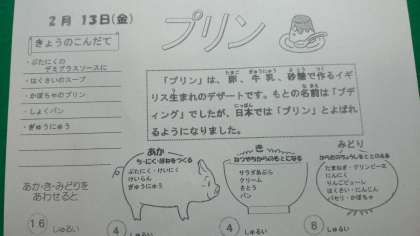 2月 13日(金)
プリン
きょうのこんだて
・ぶたにくの
デミグラスソースに
・はくさいのスープ
・かぼちゃのプリン
・しょくパン
・ぎゅうにゅう
「プリン」は、卵、牛乳、砂糖で作るイギ
リス生まれのデザートです。もとの名前は「プデ
ィング」でしたが、日本では「プリン」とよばれ
るようになりました。
あか
ち・にく・ほねをつくる
ぶたにく・けいにく
けいらん
ぎゅうにゅう
き
ねつやちからのもとになる
サラダあぶら
クリーム
さとう
パン
みどり
からだのちょうしをととのえる
たまねぎ・グリンピース
にんにく
りんごピューレ
はくさい・にんじん
パセリ・かぼちゃ
あか・き・みどりを
あわせると
16 しゅるい
4 しゅるい
4 しゅるい
8 しゅるい